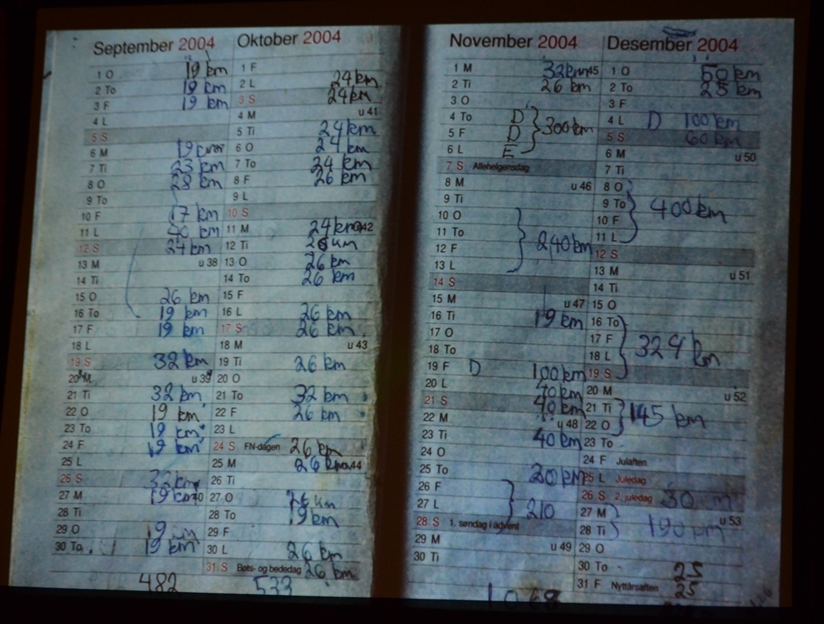 September 2004
1 O 19 km
2 To 19 km
3 F 19 km
4 L
5 S
6 M
7 Ti 23 km
8 O 28 km
9 To
10 F 17 km
11 L 40 km
12 S 24 km
13 M u 38
14 Ti
15 O 26 km
16 To 19 km
17 F 19 km
18 L
19 S 32 km
20 M u 39
21 Ti 32 km
22 O 19 km
23 To 19 km
24 F 19 km
25 L
26 S 32 km
27 M 19 km
28 Ti
29 O 19 km
30 To 19 km
482
Oktober 2004
1 F
2 L 24 km
3 S 24 km
4 M u 41
5 Ti 24 km
6 O 24 km
7 To 24 km
8 F 26 km
9 L
10 S
11 M 24 km
12 Ti 26 km
13 O 26 km
14 To 26 km
15 F
16 L 26 km
17 S 26 km
18 M u 43
19 Ti 26 km
20 O
21 To 32 km
22 F 26 km
23 L
24 S FN-dagen 26 km
25 M 26 km
26 Ti
27 O 26 km
28 To 19 km
29 F
30 L 26 km
31 S Bots- og bededag 26 km
533
November 2004
1 M 32 km 45
2 Ti 26 km
3 O
4 To D
5 F D 300 km
6 L E
7 S Allehelgensdag
8 M u 46
9 Ti
10 O
11 To
12 F 240 km
13 L
14 S
15 M u 47
16 Ti 19 km
17 O
18 To
19 F D 100 km
20 L 40 km
21 S 40 km
22 M u 48
23 Ti 40 km
24 O
25 To 20 km
26 F
27 L 210
28 S 1. søndag i advent
29 M u 49
30 Ti
1068
Desember 2004
1 O 50 km
2 To 25 km
3 F
4 L D 100 km
5 S 60 km
6 M u 50
7 Ti
8 O
9 To 400 km
10 F
11 L
12 S
13 M u 51
14 Ti
15 O
16 To
17 F 329 km
18 L
19 S
20 M u 52
21 Ti 145 km
22 O
23 To
24 F Julaften
25 L Juledag
26 S 2. juledag 30
27 M
28 Ti 190 km u 53
29 O
30 To 25
31 F Nyttårsaften 25